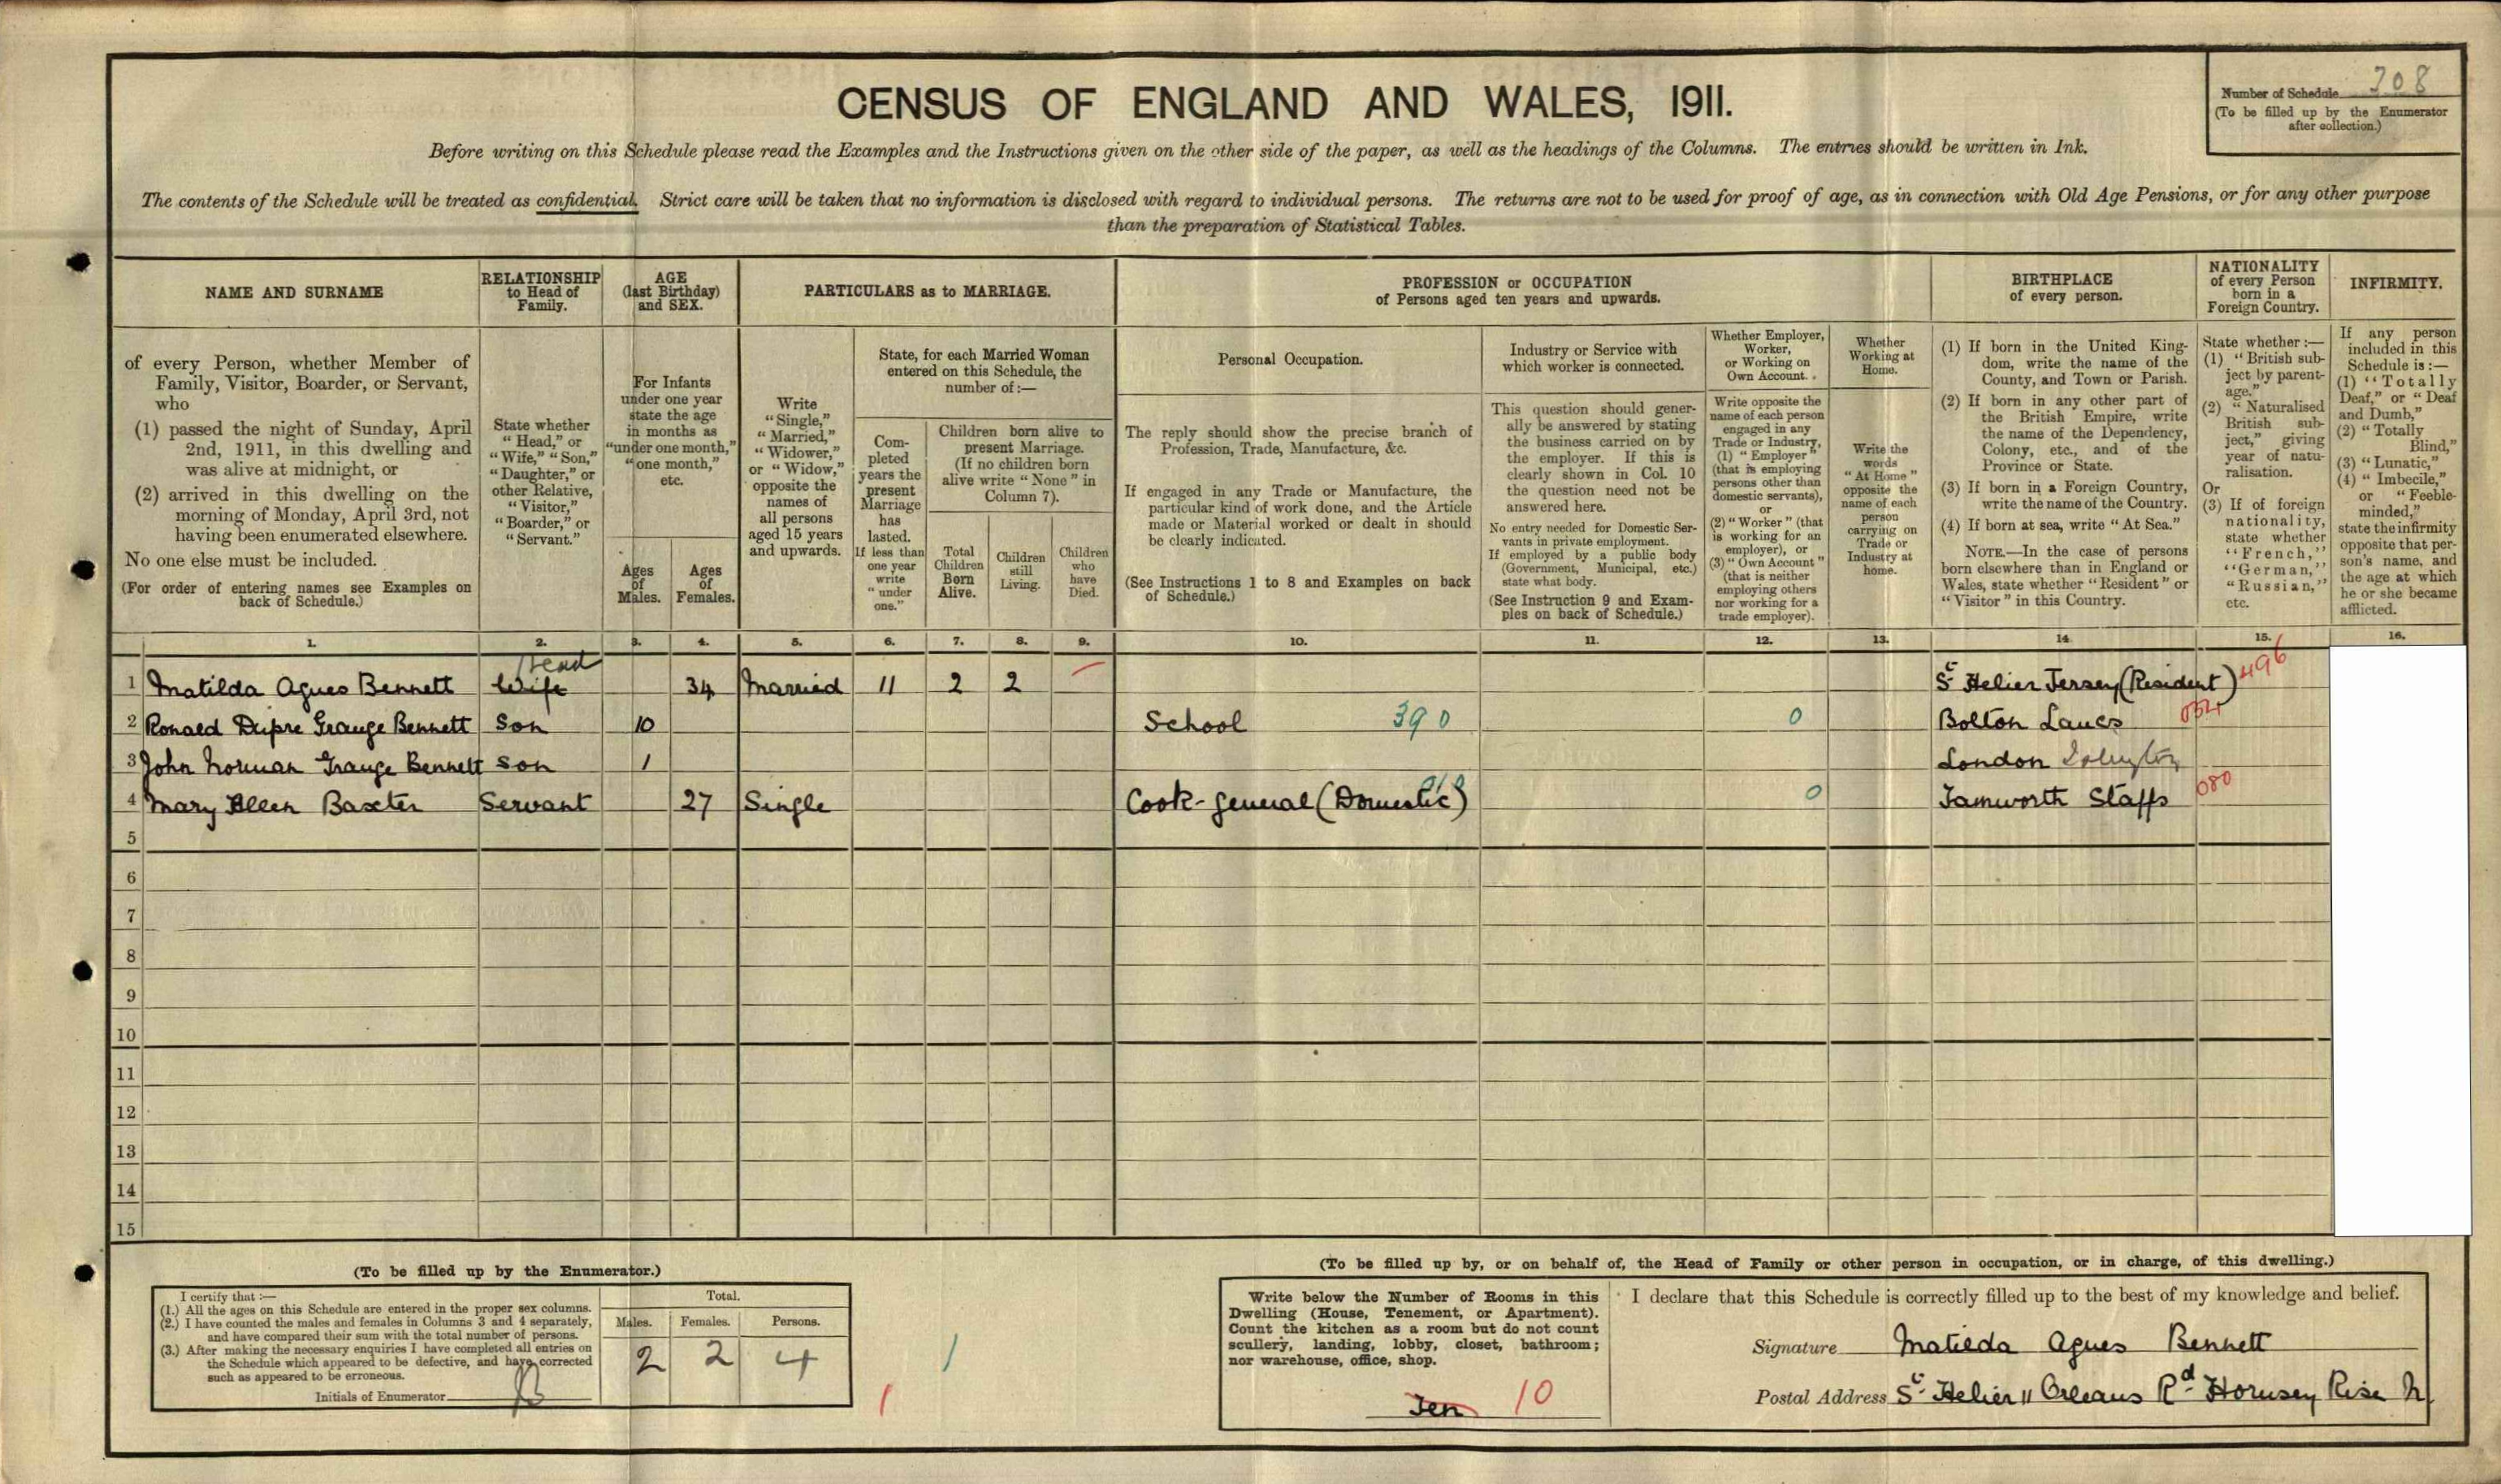 Number of Schedule 208
(To be filled up by the Enumerator
after collection.)
CENSUS OF ENGLAND AND WALES, 1911.
Before writing on this Schedule please read the Examples and the Instructions given on the other side of the paper, as well as the headings of the Columns. The entries should be written in Ink.
The contents of the Schedule will be treated as confidential. Strict care will be taken that no information is disclosed with regard to individual persons. The returns are not to be used for proof of age, as in connection with Old Age Pensions, or for any other purpose
than the preparation of Statistical Tables.
NAME AND SURNAME
of every Person, whether Member of
Family, Visitor, Boarder, or Servant,
who
(1) passed the night of Sunday, April
2nd, 1911, in this dwelling and
was alive at midnight, or
(2) arrived in this dwelling on the
morning of Monday, April 3rd, not
having been enumerated elsewhere.
No one else must be included.
(For order of entering names see Examples on
back of Schedule.)
RELATIONSHIP
to Head of
Family.
State whether
"Head," or
"Wife," "Son,"
"Daughter," or
other Relative,
"Visitor,"
"Boarder," or
"Servant."
AGE
(last Birthday)
and SEX.
For Infants
under one year
state the age
in months as
"under one month,"
"one month,"
etc.
Ages
of
Males.
Ages
of
Females.
PARTICULARS as to MARRIAGE.
Write
"Single,"
"Married,"
"Widower,"
or "Widow,"
opposite the
names of
all persons
aged 15 years
and upwards.
State, for each Married Woman
entered on this Schedule, the
number of:—
Com-
pleted
years the
present
Marriage
has
lasted.
If less than
one year
write
"under
one."
Children born alive to
present Marriage.
(If no children born
alive write "None" in
Column 7).
Total
Children
Born
Alive.
Children
still
Living.
Children
who
have
Died.
PROFESSION or OCCUPATION
of Persons aged ten years and upwards.
Personal Occupation.
The reply should show the precise branch of
Profession, Trade, Manufacture, &c.
If engaged in any Trade or Manufacture, the
particular kind of work done, and the Article
made or Material worked or dealt in should
be clearly indicated.
(See Instructions 1 to 8 and Examples on back
of Schedule.)
Industry or Service with
which worker is connected.
This question should gener-
ally be answered by stating
the business carried on by
the employer. If this is
clearly shown in Col. 10
the question need not be
answered here.
No entry needed for Domestic Ser-
vants in private employment.
If employed by a public body
(Government, Municipal, etc.)
state what body.
(See Instruction 9 and Exam-
ples on back of Schedule.)
Whether Employer,
Worker,
or Working on
Own Account.
Write opposite the
name of each person
engaged in any
Trade or Industry,
(1) "Employer"
(that is employing
persons other than
domestic servants),
or
(2) "Worker" (that
is working for an
employer), or
(3) "Own Account"
(that is neither
employing others
nor working for a
trade employer).
Whether
Working at
Home.
Write the
words
"At Home"
opposite the
name of each
person
carrying on
Trade or
Industry at
home.
BIRTHPLACE
of every person.
(1) If born in the United King-
dom, write the name of the
County, and Town or Parish.
(2) If born in any other part of
the British Empire, write
the name of the Dependency,
Colony, etc., and of the
Province or State.
(3) If born in a Foreign Country,
write the name of the Country.
(4) If born at sea, write "At Sea."
NOTE.—In the case of persons
born elsewhere than in England or
Wales, state whether "Resident" or
"Visitor" in this Country.
NATIONALITY
of every Person
born in a
Foreign Country.
State whether:—
(1) "British sub-
ject by parent-
age."
(2) "Naturalised
British sub-
ject," giving
year of natu-
ralisation.
Or
(3) If of foreign
nationality,
state whether
"French,"
"German,"
"Russian,"
etc.
INFIRMITY.
If any person
included in this
Schedule is:—
(1) "Totally
Deaf," or "Deaf
and Dumb,"
(2) "Totally
Blind,"
(3) "Lunatic,"
(4) "Imbecile,"
or "Feeble-
minded,"
state the infirmity
opposite that per-
son's name, and
the age at which
he or she became
afflicted.
1. 2. 3. 4. 5. 6. 7. 8. 9. 10. 11. 12. 13. 14. 15. 16.
Head
1 Matilda Agnes Bennett Wife 34 Married 11 2 2 — St Helier Jersey (Resident) 496
2 Ronald Dupre Grange Bennett Son 10 School 390 0 Bolton Lancs
3 John Norman Grange Bennett Son 1 London Islington
4 Mary Ellen Baxter Servant 27 Single Cook-General (Domestic) 0 Tamworth Staffs 080
5
6
7
8
9
10
11
12
13
14
15
(To be filled up by the Enumerator.)
I certify that:—
(1.) All the ages on this Schedule are entered in the proper sex columns.
(2.) I have counted the males and females in Columns 3 and 4 separately,
and have compared their sum with the total number of persons.
(3.) After making the necessary enquiries I have completed all entries on
the Schedule which appeared to be defective, and have corrected
such as appeared to be erroneous.
Initials of Enumerator
Total.
Males. Females. Persons.
2 2 4
1 1
(To be filled up by, or on behalf of, the Head of Family or other person in occupation, or in charge, of this dwelling.)
Write below the Number of Rooms in this
Dwelling (House, Tenement, or Apartment).
Count the kitchen as a room but do not count
scullery, landing, lobby, closet, bathroom;
nor warehouse, office, shop.
Ten 10
I declare that this Schedule is correctly filled up to the best of my knowledge and belief.
Signature Matilda Agnes Bennett
Postal Address St Helier 11 Orleans Rd Hornsey Rise N.